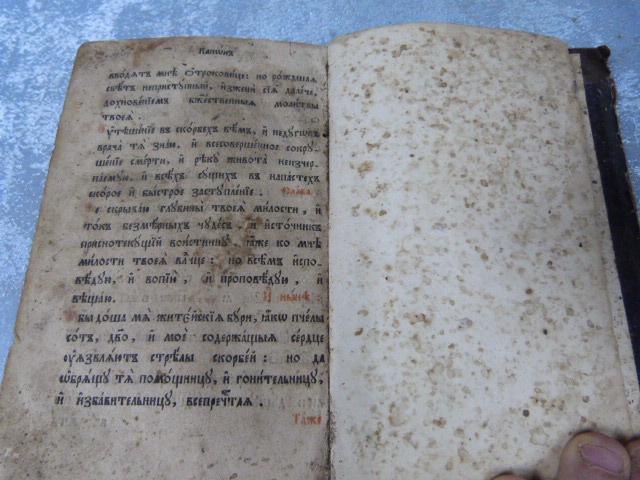 Канѡ́нъ
вводѧ́тъ мнѣ̀ Ѻ҆трокови́це: но ро́ждшаѧ
свѣ́тъ непристꙋ́пный, и҆зжени̑ сїѧ̑ дале́че,
дохнове́нїемъ бж҃е́ственныѧ моли́твы
твоеѧ̀.
Оу҆тѣше́нїе въ ско́рбехъ вѣ́мъ, и҆ недꙋ́гѡвъ
врача̀ тѧ̀ зна́ю, и҆ всесоверше́нное сокрꙋ-
ше́нїе сме́рти, и҆ рѣ́кꙋ живота̀ неизчер-
па́емꙋю, и҆ всѣ́хъ сꙋ́щихъ въ напа́стехъ
ско́рое и҆ бы́строе застꙋпле́нїе. Сла́ва:
Не скрыва́ю глꙋбины̀ твоеѧ̀ ми́лости, и҆
то́къ безмѣ́рныхъ чꙋде́съ, и҆ исто́чникъ
присноте́кꙋщїй вои́стиннꙋ, ꙗ҆́же ко мнѣ̀
ми́лости твоеѧ̀ влⷣчце: но всѣ́мъ и҆спо-
вѣ́дꙋю, и҆ вопїю̀, и҆ проповѣ́дꙋю, и҆
вѣща́ю. И҆ ны́нѣ:
Ѡбыдо́ша мѧ̀ жите́йскїѧ бꙋ̑ри, ꙗ҆́кѡ пче́лы
со́тъ, дв҃о, и҆ моѐ содержа́щыѧ се́рдце
оу҆ѧзвлѧ́ютъ стрѣла́ми скорбе́й: но да
ѡ҆брѧ́щꙋ тѧ̀ помо́щницꙋ, и҆ гони́тельницꙋ,
и҆ и҆зба́вительницꙋ, всепречⷭ҇таѧ.
Та́же